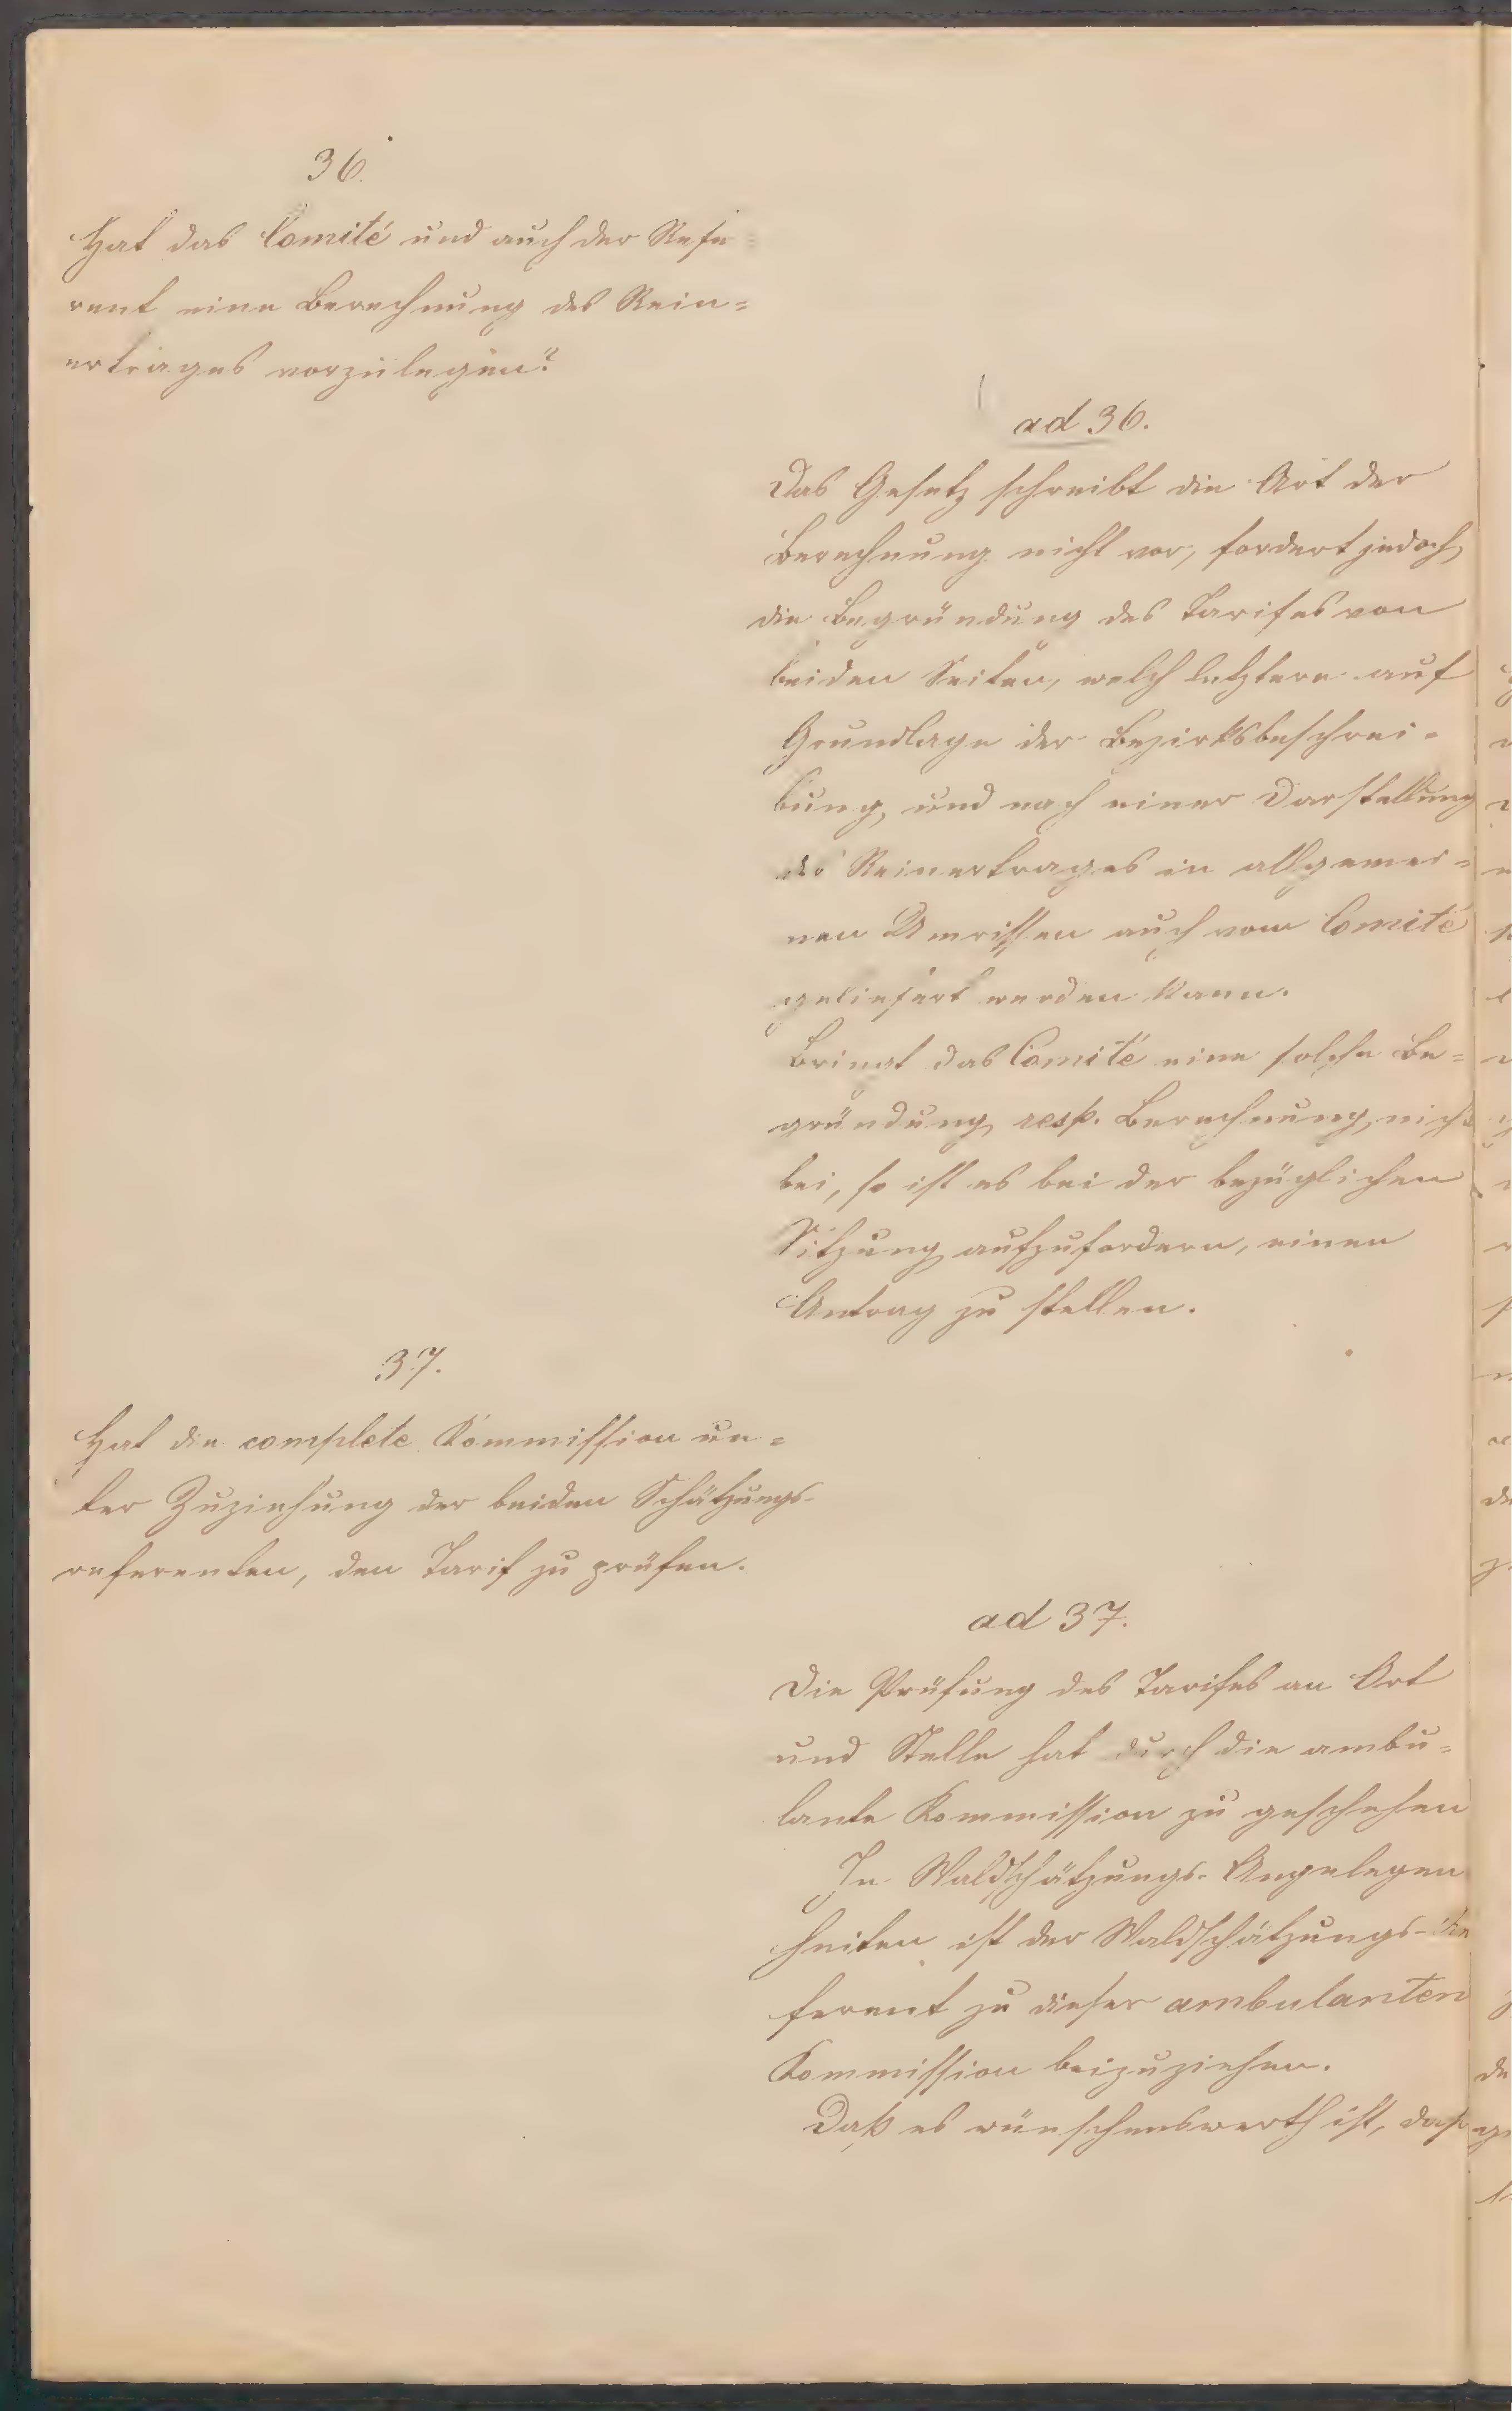 36.
Hat das Comité und auch der Refe=
rent eine Berechnung des Rein=
ertrages vorzulegen?
ad 36.
Das Gesetz schreibt die Art der
Berechnung nicht vor, fordert jedoch
die Begründung des Tarifes von
beiden Seiten, welch letztere auf
Grundlage der Bezirksbeschrei-
bung, und nach einer Darstellung
des Reinertrages in allgemei=
nen Umrissen auch vom Comité
geliefert werden kann.
Bringt das Comité eine solche Be=
gründung resp. Berechnung nicht
bei, so ist es bei der bezüglichen
Sitzung aufzufordern, einen
Antrag zu stellen.
37.
Hat die complete Kommission un=
ter Zuziehung der beiden Schätzungs-
referenten, den Tarif zu prüfen.
ad 37.
Die Prüfung des Tarifes an Ort
und Stelle hat durch die ambu=
lante Kommission zu geschehen
In Waldschätzungs-Angelegen
heiten ist der Waldschätzungs-Re
ferent zu dieser ambulanten
Kommission beizuziehen.
Daß es wünschenswerth ist, daß